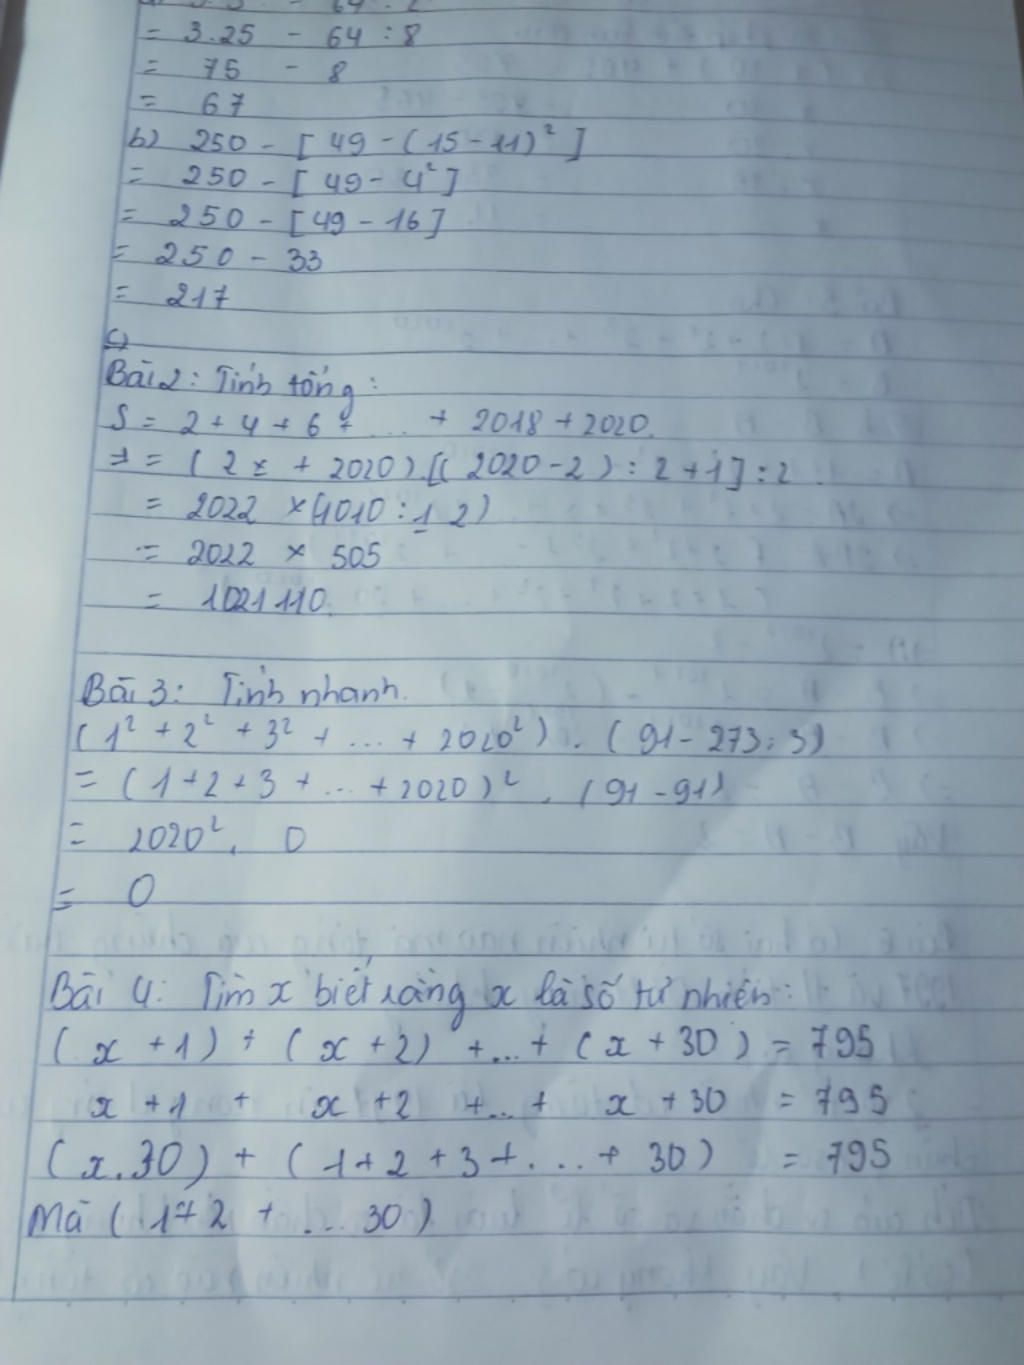 = 3.25 - 64 : 8
= 75 - 8
= 67
b) 250 - [ 49 - ( 15 - 11)² ]
= 250 - [ 49 - 4² ]
= 250 - [ 49 - 16 ]
= 250 - 33
= 217
c)
Bài 2: Tính tổng:
S = 2 + 4 + 6 + ... + 2018 + 2020.
= ( 2 + 2020 ) . [( 2020 - 2 ) : 2 + 1 ] : 2
= 2022 × (1010 : 2)
= 2022 × 505
= 1021110.
Bài 3: Tính nhanh.
( 1² + 2² + 3² + ... + 2020² ) . ( 91 - 273 : 3)
= ( 1 + 2 + 3 + ... + 2020 )² . ( 91 - 91)
= 2020² . 0
= 0
Bài 4: Tìm x biết rằng x là số tự nhiên:
( x + 1 ) + ( x + 2) + ... + ( x + 30 ) = 795
x + 1 + x + 2 + ... + x + 30 = 795
( x . 30 ) + ( 1 + 2 + 3 + ... + 30 ) = 795
Mà ( 1 + 2 + ... 30 )